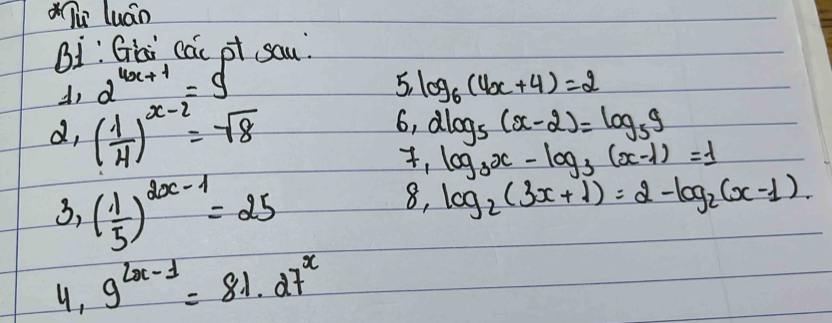 *Tự luận
B1: Giải các pt sau:
1, 2^{4x+1} = 9
2, (1/4)^{x-2} = √8
3, (1/5)^{2x-1} = 25
4, 9^{2x-1} = 81.27^x
5, log₆(4x+4)=2
6, 2log₅(x-2)=log₅9
7, log₃x - log₃(x-1) =1
8, log₂(3x+1)=2-log₂(x-1).